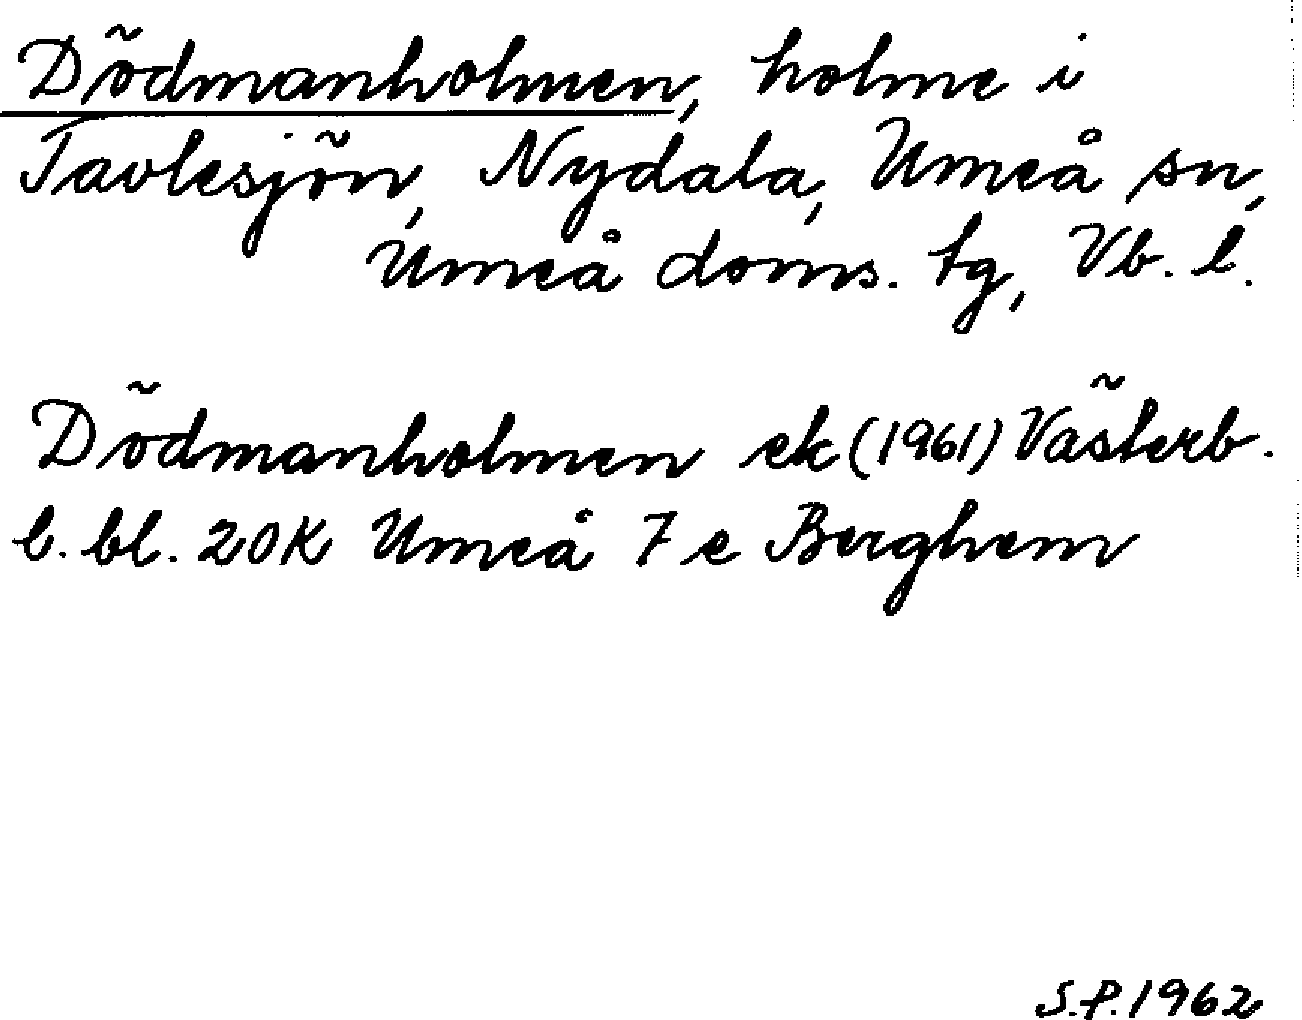 Dödmanholmen, holme i
Tavlesjön, Nydala, Umeå sn,
Umeå doms. tg, Vb. l.
Dödmanholmen ek (1961) Västerb.
l. bl. 20K Umeå 7 e Berghem
S.P. 1962